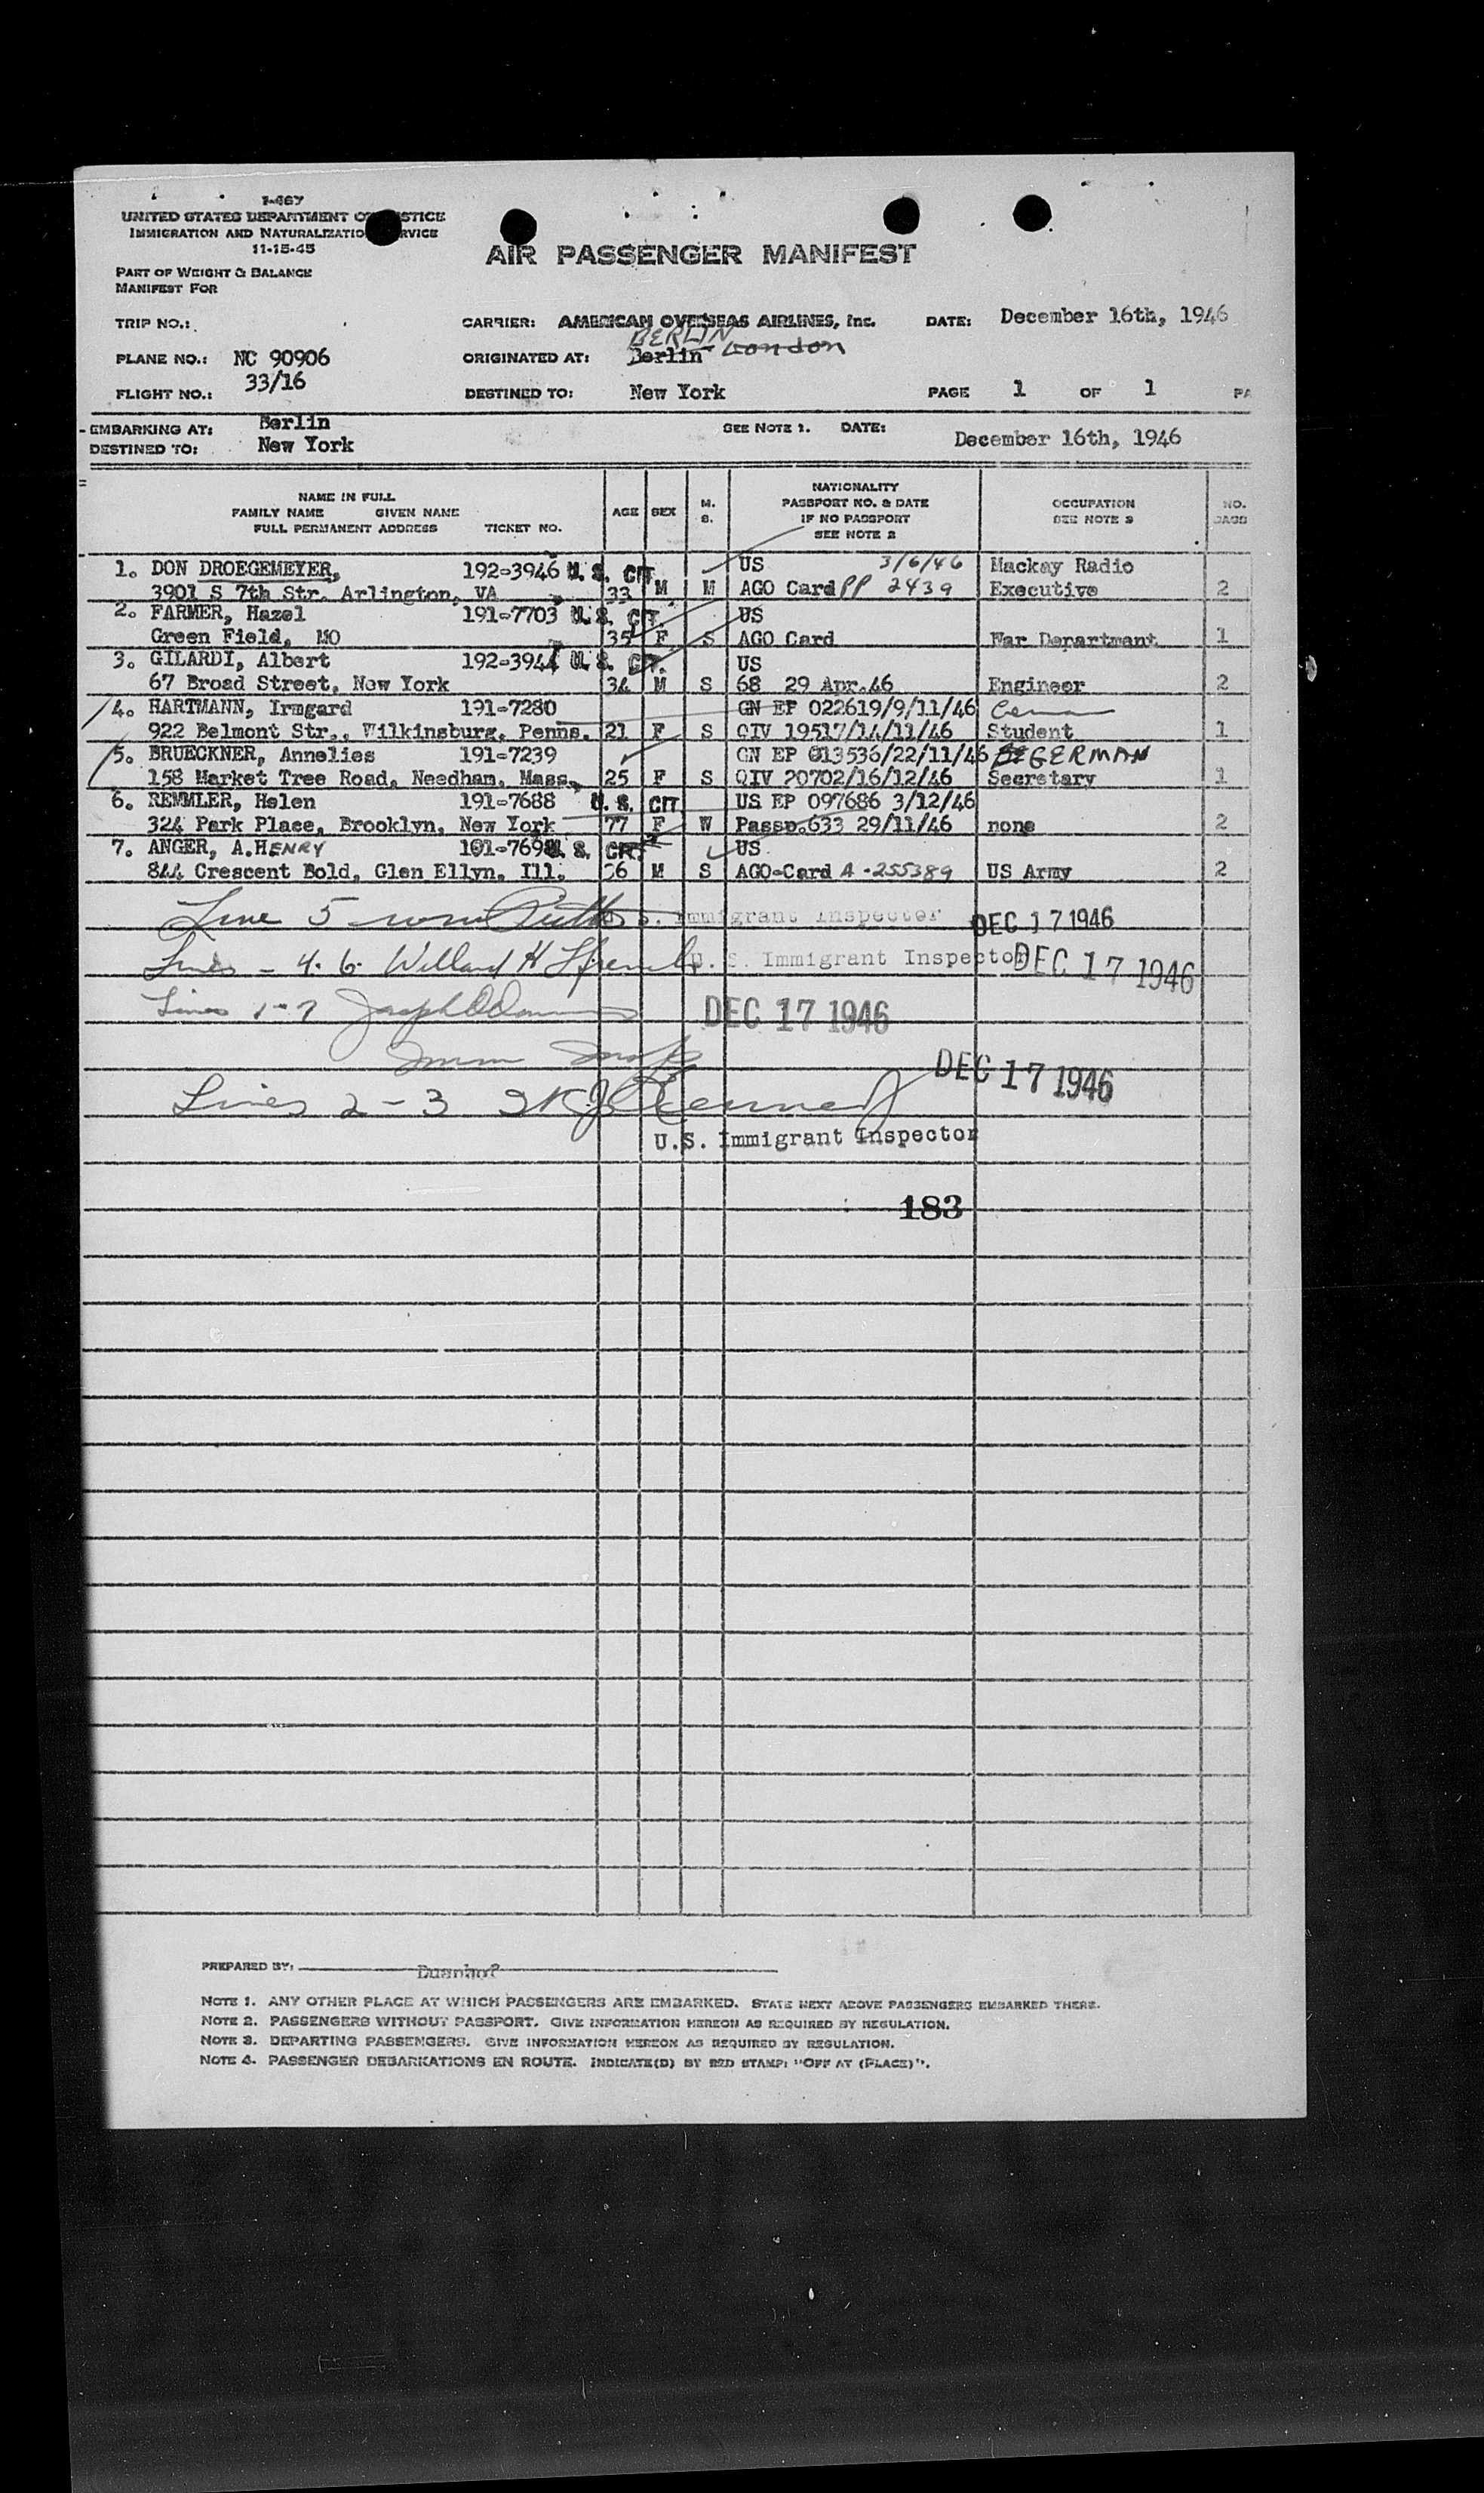 I-467
UNITED STATES DEPARTMENT OF JUSTICE
IMMIGRATION AND NATURALIZATION SERVICE
11-15-45
AIR PASSENGER MANIFEST
PART OF WEIGHT & BALANCE
MANIFEST FOR
TRIP NO.: CARRIER: AMERICAN OVERSEAS AIRLINES, Inc. DATE: December 16th, 1946
BERLIN
PLANE NO.: NC 90906 ORIGINATED AT: Berlin London
FLIGHT NO.: 33/16 DESTINED TO: New York PAGE 1 OF 1 PA
EMBARKING AT: Berlin SEE NOTE 1. DATE: December 16th, 1946
DESTINED TO: New York
NAME IN FULL
FAMILY NAME GIVEN NAME
FULL PERMANENT ADDRESS TICKET NO. AGE SEX M. S. NATIONALITY PASSPORT NO. & DATE IF NO PASSPORT SEE NOTE 2 OCCUPATION SEE NOTE 3 NO.
1. DON DROEGEMEYER, 192-3946 U. S. CIT US 3/6/46 Mackay Radio
3901 S 7th Str. Arlington, VA 33 M M AGO Card PP 2439 Executive 2
2. FARMER, Hazel 191-7703 U. S. CIT. US
Green Field, MO 35 F S AGO Card War Department 1
3. GILARDI, Albert 192-3947 U. S. CIT. US
67 Broad Street, New York 34 M S 68 29 Apr.46 Engineer 2
4. HARTMANN, Irmgard 191-7280 GN EP 022619/9/11/46
922 Belmont Str., Wilkinsburg, Penns. 21 F S QIV 19517/14/11/46 Student 1
5. BRUECKNER, Annelies 191-7239 GN EP 013536/22/11/46 GERMAN
158 Market Tree Road, Needham, Mass. 25 F S QIV 20702/16/12/46 Secretary 1
6. REMMLER, Helen 191-7688 U. S. CIT US EP 097686 3/12/46
324 Park Place, Brooklyn, New York 77 F W Passp.633 29/11/46 none 2
7. ANGER, A.HENRY U. S. CIT. US
844 Crescent Bold, Glen Ellyn, Ill. M S AGO-Card A-255389 US Army 2
Line 5 U. S. Immigrant Inspector DEC 17 1946
Lines - 4. 6. Willard H U. S. Immigrant Inspector DEC 17 1946
Lines 1-7 Joseph DEC 17 1946
Imm DEC 17 1946
Lines 2-3 Kennedy
U.S. Immigrant Inspector
183
PREPARED BY:
NOTE 1. ANY OTHER PLACE AT WHICH PASSENGERS ARE EMBARKED. STATE NEXT ABOVE PASSENGERS EMBARKED THERE.
NOTE 2. PASSENGERS WITHOUT PASSPORT. GIVE INFORMATION HEREON AS REQUIRED BY REGULATION.
NOTE 3. DEPARTING PASSENGERS. GIVE INFORMATION HEREON AS REQUIRED BY REGULATION.
NOTE 4. PASSENGER DEBARKATIONS EN ROUTE. INDICATE(D) BY RED STAMP: "OFF AT (PLACE)".